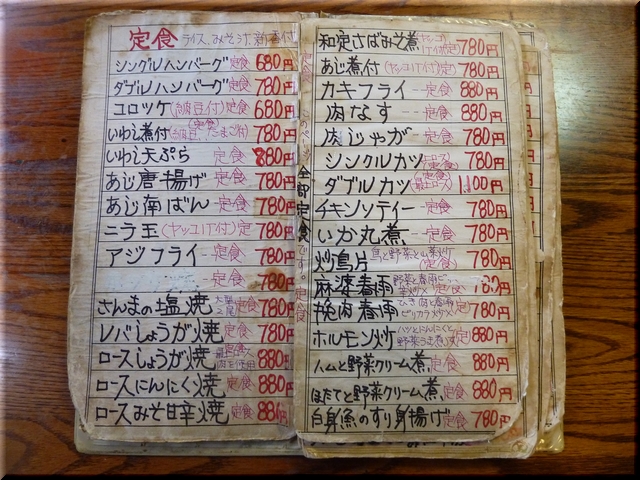 定食 ライス、みそ汁、新香付
シングルハンバーグ 定食 680円
ダブルハンバーグ 定食 780円
コロッケ(納豆付)定食 680円
いわし煮付(納豆、たまご付)定食 780円
いわし天ぷら 定食 880円
あじ唐揚げ 定食 780円
あじ南ばん 定食 780円
ニラ玉(ヤッコ付)定 780円
アジフライ 定食 780円
定食 780円
さんまの塩焼 定食 780円
レバしょうが焼 定食 780円
ロースしょうが焼 880円
ロースにんにく焼 定食 880円
ロースみそ甘辛焼 定食 880円
全部定食です。
定食
和定さばみそ煮 780円
あじ煮付(ヤッコ付)定 780円
カキフライ 定食 880円
肉なす 定食 880円
肉じゃが 定食 780円
シングルカツ 定食 780円
ダブルカツ 定食 1100円
チキンソテイー 定食 780円
いか丸煮 定食 780円
炒鳥片 鳥と野菜と山菜炒け(定食) 780円
麻婆春雨 定食
挽肉春雨 ひき肉と春雨ピリカラ炒メ 780円
ホルモン炒 ハツとにんにくと野菜うま煮い 定食 880円
ハムと野菜クリーム煮 定食 880円
ほたてと野菜クリーム煮 定食 880円
白身魚のすり身揚げ 定食 780円